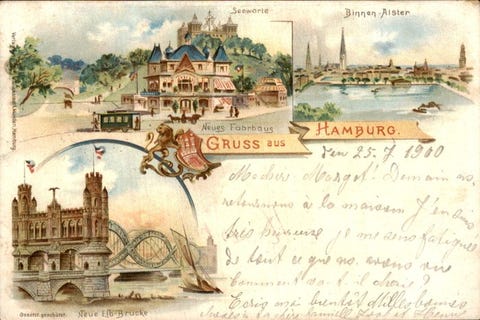 Seewarte
Binnen-Alster
Neues Fährhaus
GRUSS aus HAMBURG.
Den 25. 7 1900
Ma chère Margot! Demain nous
retournons à la maison J'en suis
très heureuse je me sens fatiguée
de tout ce que nous avons vu
Comment vas tu chérie?
Ecris moi bientôt Mille baisers
Neue Elb-Brücke
Gesetzl. geschützt.